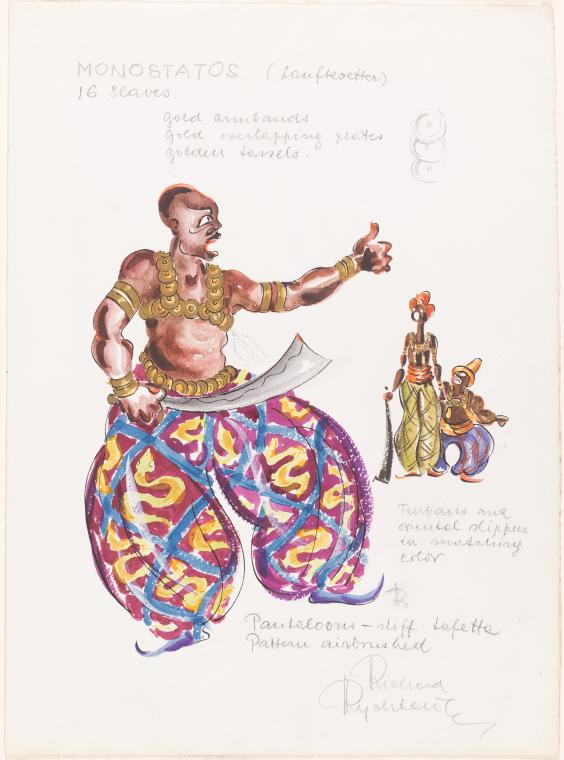 MONOSTATOS (Laufkoetter)
16 Slaves.
gold armbands
gold overlapping plates
golden tassels.
Turbans and
oriental slippers
in matching
color
Pantaloons - stiff tafetta
Pattern airbrushed
Richard